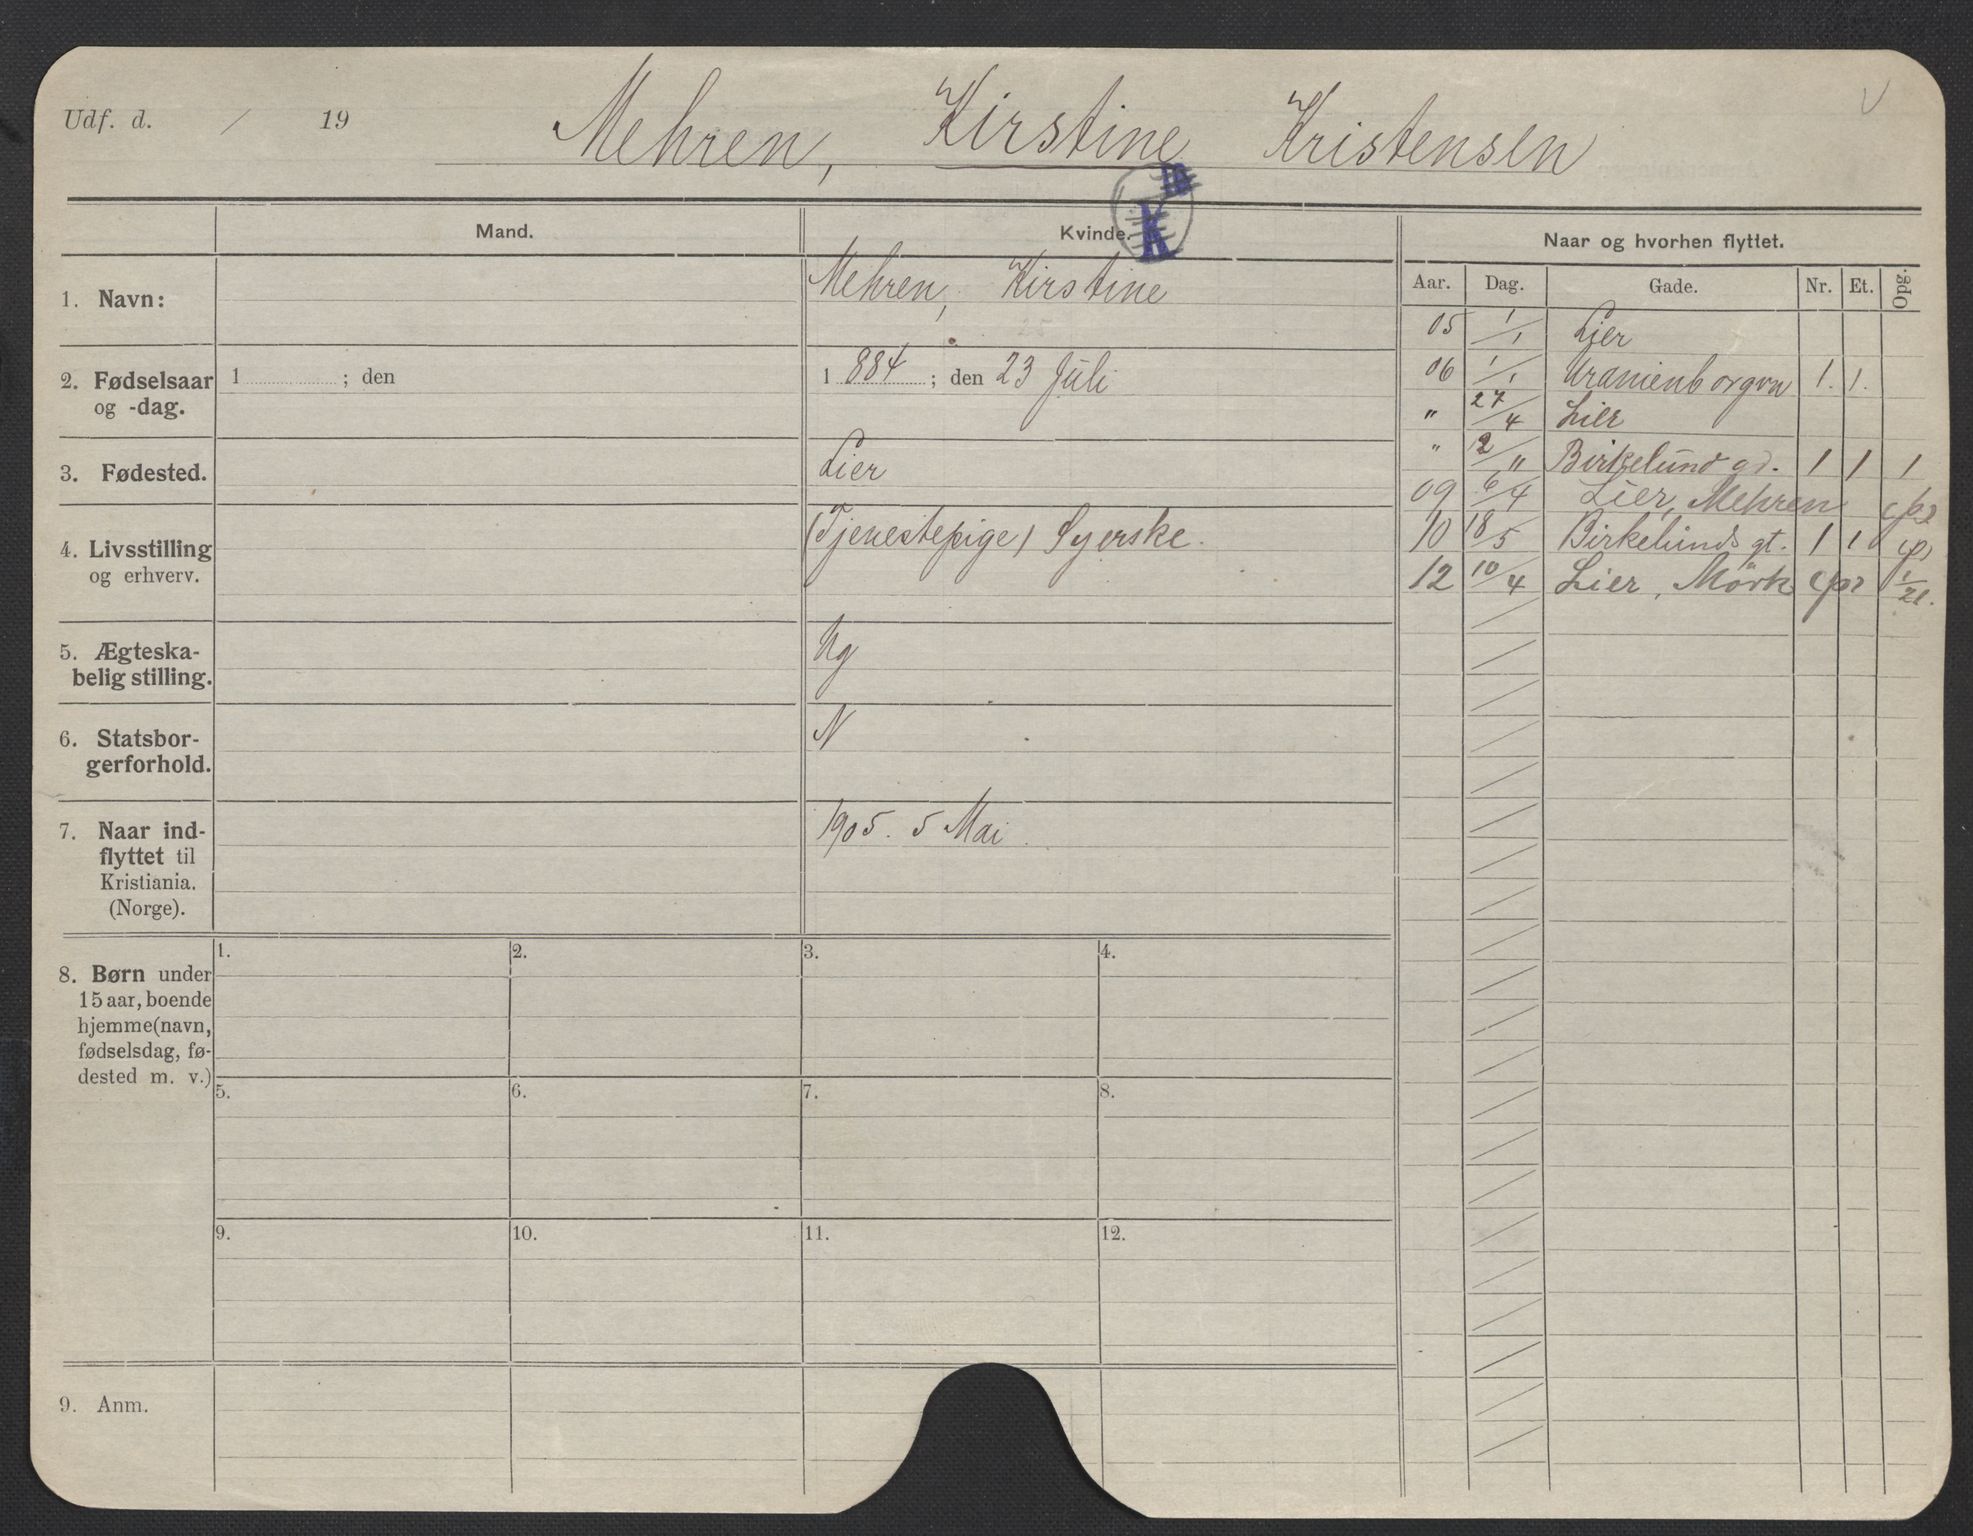 Udf. d. / 19
Mehren, Kirstine Kristensen
Mand.
Kvinde.
K
Naar og hvorhen flyttet.
Aar. Dag. Gade. Nr. Et. Opg.
1. Navn:
Mehren, Kirstine
2. Fødselsaar og -dag.
1 ; den
1 884 ; den 23 Juli
3. Fødested.
Lier
4. Livsstilling og erhverv.
(Tjenestepige) Syerske.
5. Ægteska-
belig stilling.
Ug
6. Statsbor-
gerforhold.
N
7. Naar ind-
flyttet til
Kristiania.
(Norge).
1905. 5 Mai
05 1/1 Lier
06 1/1 Uranienborgvn 1. 1.
" 27/4 Lier
" 12/11 Birkelund gd. 1 1 1
09 6/4 Lier, Mehren
10 18/5 Birkelunds gt. 1 1
12 10/4 Lier, Mörk 1/21.
8. Børn under
15 aar, boende
hjemme (navn,
fødselsdag, fø-
dested m. v.)
1. 2. 3. 4.
5. 6. 7. 8.
9. 10. 11. 12.
9. Anm.